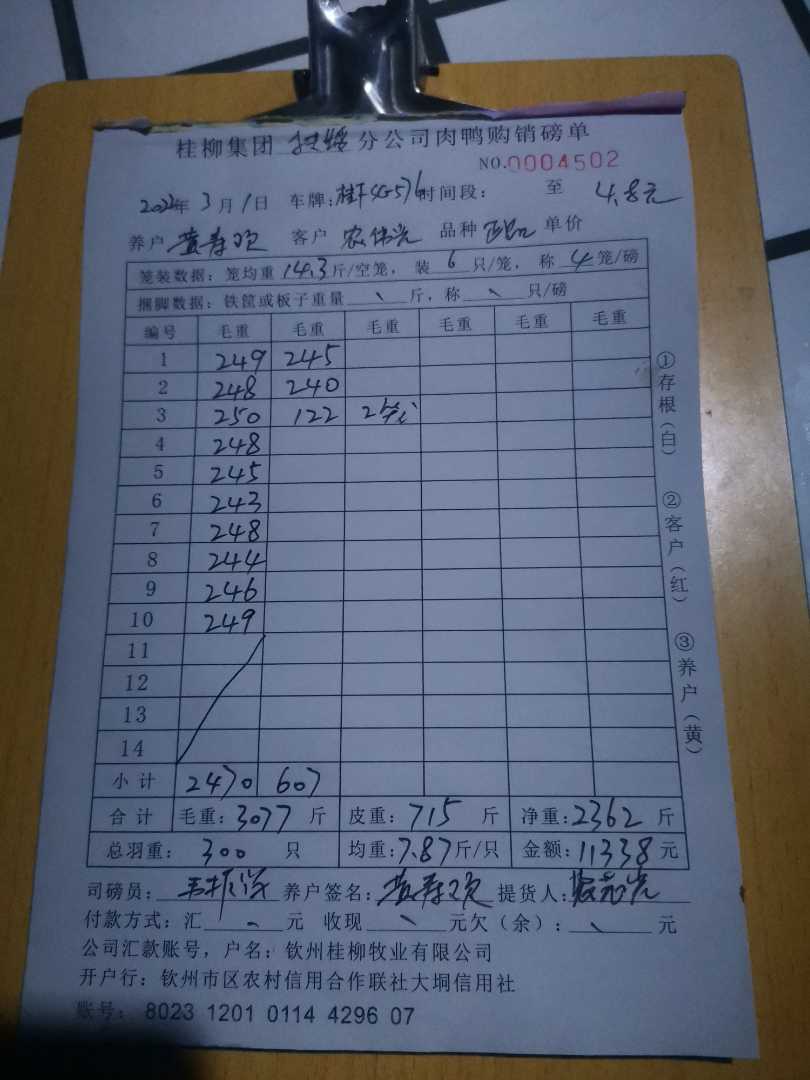 桂柳集团 扶绥 分公司肉鸭购销磅单
NO.0004502
2022年 3月1日 车牌:桂F4G576 时间段: 至 4.8元
养户 黄寿欢 客户 农伟光 品种 单价
笼装数据:笼均重 14.3 斤/空笼, 装 6 只/笼, 称 4 笼/磅
捆脚数据:铁筐或板子重量 、 斤,称 、 只/磅
编号 毛重 毛重 毛重 毛重 毛重 毛重
1 249 245
2 248 240
3 250 122 2笼
4 248
5 245
6 243
7 248
8 244
9 246
10 249
11
12
13
14
小计 2470 607
合计 毛重:3077 斤 皮重:715 斤 净重:2362 斤
总羽重: 300 只 均重:7.87斤/只 金额:11338元
司磅员: 养户签名:黄寿欢 提货人:
付款方式:汇 、 元 收现 、 元欠(余): 、 元
公司汇款账号,户名:钦州桂柳牧业有限公司
开户行:钦州市区农村信用合作联社大垌信用社
账号: 8023 1201 0114 4296 07
①存根(白) ②客户(红) ③养户(黄)